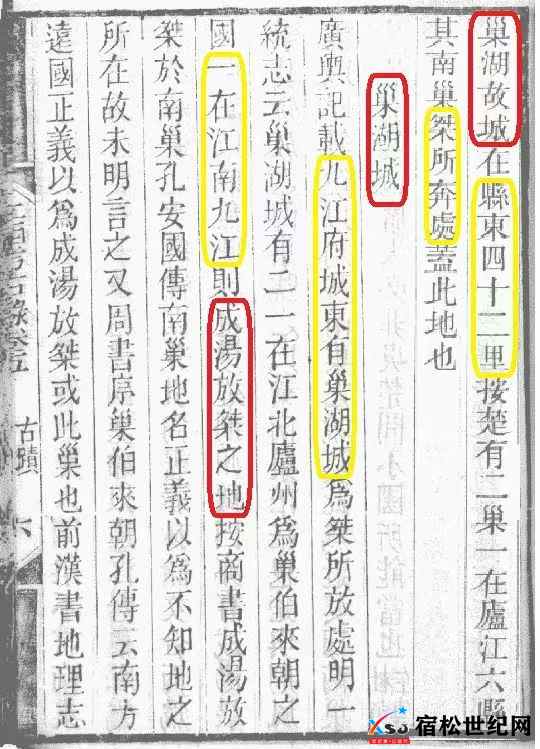 巢湖故城在縣東四十二里按楚有二巢一在廬江六縣
其南巢桀所奔處蓋此地也
巢湖城
廣輿記載九江府城東有巢湖城為桀所放處明一
統志云巢湖城有二一在江北廬州為巢伯來朝之
國一在江南九江則成湯放桀之地按商書成湯放
桀於南巢孔安國傳南巢地名正義以為不知地之
所在故未明言之又周書序巢伯來朝孔傳云南方
遠國正義以為成湯放桀或此巢也前漢書地理志
古蹟
六
宿松世纪网